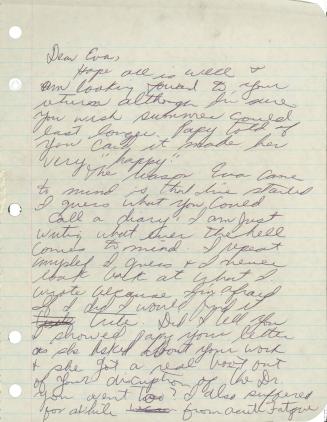 Dear Eva,
Hope all is well &
am looking forward to your
return although I'm sure
you wish summer could
last longer. Papy told of
your card, it made her
very "happy"
The reason Eva came
to mind is that I've started
I guess what you could
call a diary. I am just
writing what ever the hell
comes to mind. I repeat
myself I guess & I never
look back at what I
wrote because I'm afraid
if I did I would
write. Did I tell you
I showed Papy your letter
as she asked about your work
& she got a real out
of your discription of the Dr.
you went too? I also suffered
for awhile from acute fatigue